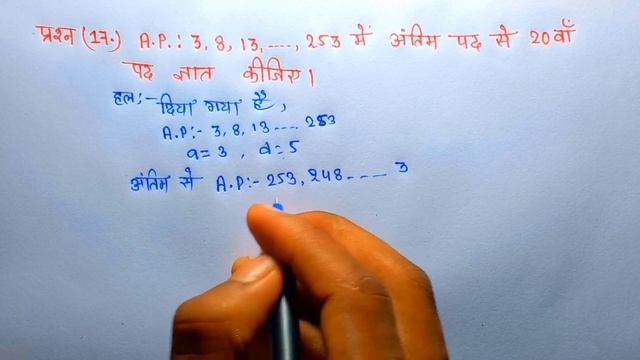 प्रश्न (17.) A.P.: 3, 8, 13, ...., 253 में अंतिम पद से 20वाँ
पद ज्ञात कीजिए।
हल:- दिया गया है,
A.P:- 3, 8, 13 .... 253
a = 3 , d = 5
अंतिम से A.P:- 253, 248 ---- 3